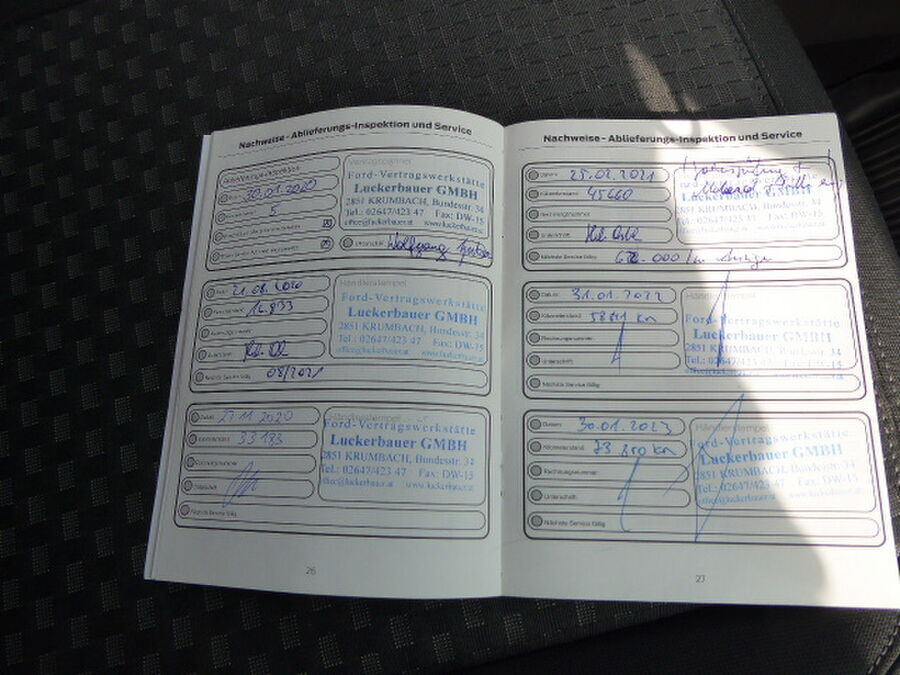 Nachweise - Ablieferungs-Inspektion und Service
Ablieferungs-Inspektion
30.01.2020
5
Vertragspartner
Ford-Vertragswerkstätte
Luckerbauer GMBH
2851 KRUMBACH, Bundesstr. 34
Tel.: 02647/423 47 Fax: DW-15
office@luckerbauer.at www.luckerbauer.at
Unterschrift
Wolfgang
Datum
21.08.2020
Kilometerstand
16.833
Rechnungsnummer
Unterschrift
Nächste Service fällig
08/2021
Händlerstempel
Ford-Vertragswerkstätte
Luckerbauer GMBH
2851 KRUMBACH, Bundesstr. 34
Tel.: 02647/423 47 Fax: DW-15
office@luckerbauer.at www.luckerbauer.at
Datum
27.11.2020
Kilometerstand
33183
Rechnungsnummer
Unterschrift
Nächste Service fällig
Händlerstempel
Ford-Vertragswerkstätte
Luckerbauer GMBH
2851 KRUMBACH, Bundesstr. 34
Tel.: 02647/423 47 Fax: DW-15
office@luckerbauer.at www.luckerbauer.at
26
Nachweise - Ablieferungs-Inspektion und Service
Datum:
25.02.2021
Kilometerstand:
45660
Rechnungsnummer:
Unterschrift:
Nächste Service fällig:
Luckerbauer GMBH
2851 KRUMBACH, Bundesstr. 34
Tel.: 02647/423 47 Fax: DW-15
office@luckerbauer.at www.luckerbauer.at
Datum:
31.01.2022
Kilometerstand:
km
Rechnungsnummer:
Unterschrift:
Nächste Service fällig:
Händlerstempel
Ford-Vertragswerkstätte
Luckerbauer GMBH
2851 KRUMBACH, Bundesstr. 34
Tel.: 02647/423 47 Fax: DW-15
Datum:
30.01.2023
Kilometerstand:
km
Rechnungsnummer:
Unterschrift:
Nächste Service fällig:
Händlerstempel
Ford-Vertragswerkstätte
Luckerbauer GMBH
2851 KRUMBACH, Bundesstr. 34
Tel.: 02647/423 47 Fax: DW-15
office@luckerbauer.at www.luckerbauer.at
27